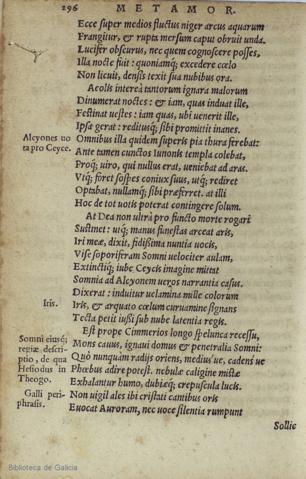 296 METAMOR.
Ecce super medios fluctus niger arcus aquarum
Frangitur, & rupta mersum caput obruit unda.
Lucifer obscurus, nec quem cognoscere posses,
Illa nocte fuit: quoniamq; excedere cœlo
Non licuit, densis texit sua nubibus ora.
Aeolis interea tantorum ignara malorum
Dinumerat noctes: & iam, quas induat ille,
Festinat uestes: iam quas, ubi uenerit ille,
Ipsa gerat: reditusq; sibi promittit inanes.
Alcyones uo
ta pro Ceyce.
Omnibus illa quidem superis pia thura ferebat:
Ante tamen cunctos Iunonis templa colebat,
Proq; uiro, qui nullus erat, ueniebat ad aras.
Vtq; foret sospes coniux suus, utq; rediret
Optabat, nullamq; sibi præferret. at illi
Hoc de tot uotis poterat contingere solum.
At Dea non ultrà pro functo morte rogari
Sustinet: utq; manus funestas arceat aris,
Iri meæ, dixit, fidißima nuntia uocis,
Vise soporiferam Somni uelociter aulam,
Extinctiq; iube Ceycis imagine mittat
Somnia ad Alcyonem ueros narrantia casus.
Dixerat: induitur uelamina mille colorum
Iris.
Iris, & arquato cœlum curuamine signans
Tecta petit iußi sub nube latentia regis.
Somni eiusq;
regiæ descri-
ptio, de qua
Hesiodus in
Theogo.
Est prope Cimmerios longo spelunca recessu,
Mons cauus, ignaui domus & penetralia Somni:
Quò nunquàm radijs oriens, mediusue, cadensue
Phœbus adire potest. nebulæ caligine mistæ
Exhalantur humo, dubiæq; crepuscula lucis.
Galli peri-
phrasis.
Non uigil ales ibi cristati cantibus oris
Euocat Auroram, nec uoce silentia rumpunt
Sollic
Biblioteca de Galicia